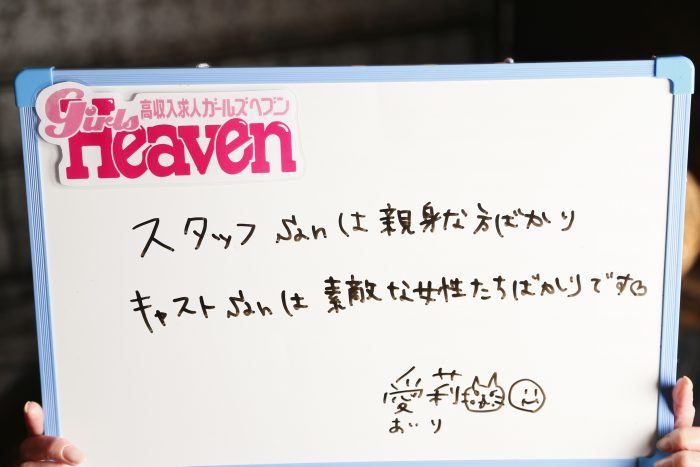 girls 高収入求人ガールズヘブン
Heaven
スタッフ sanは親身な方ばかり
キャスト sanは素敵な女性たちばかりです
愛莉
あいり